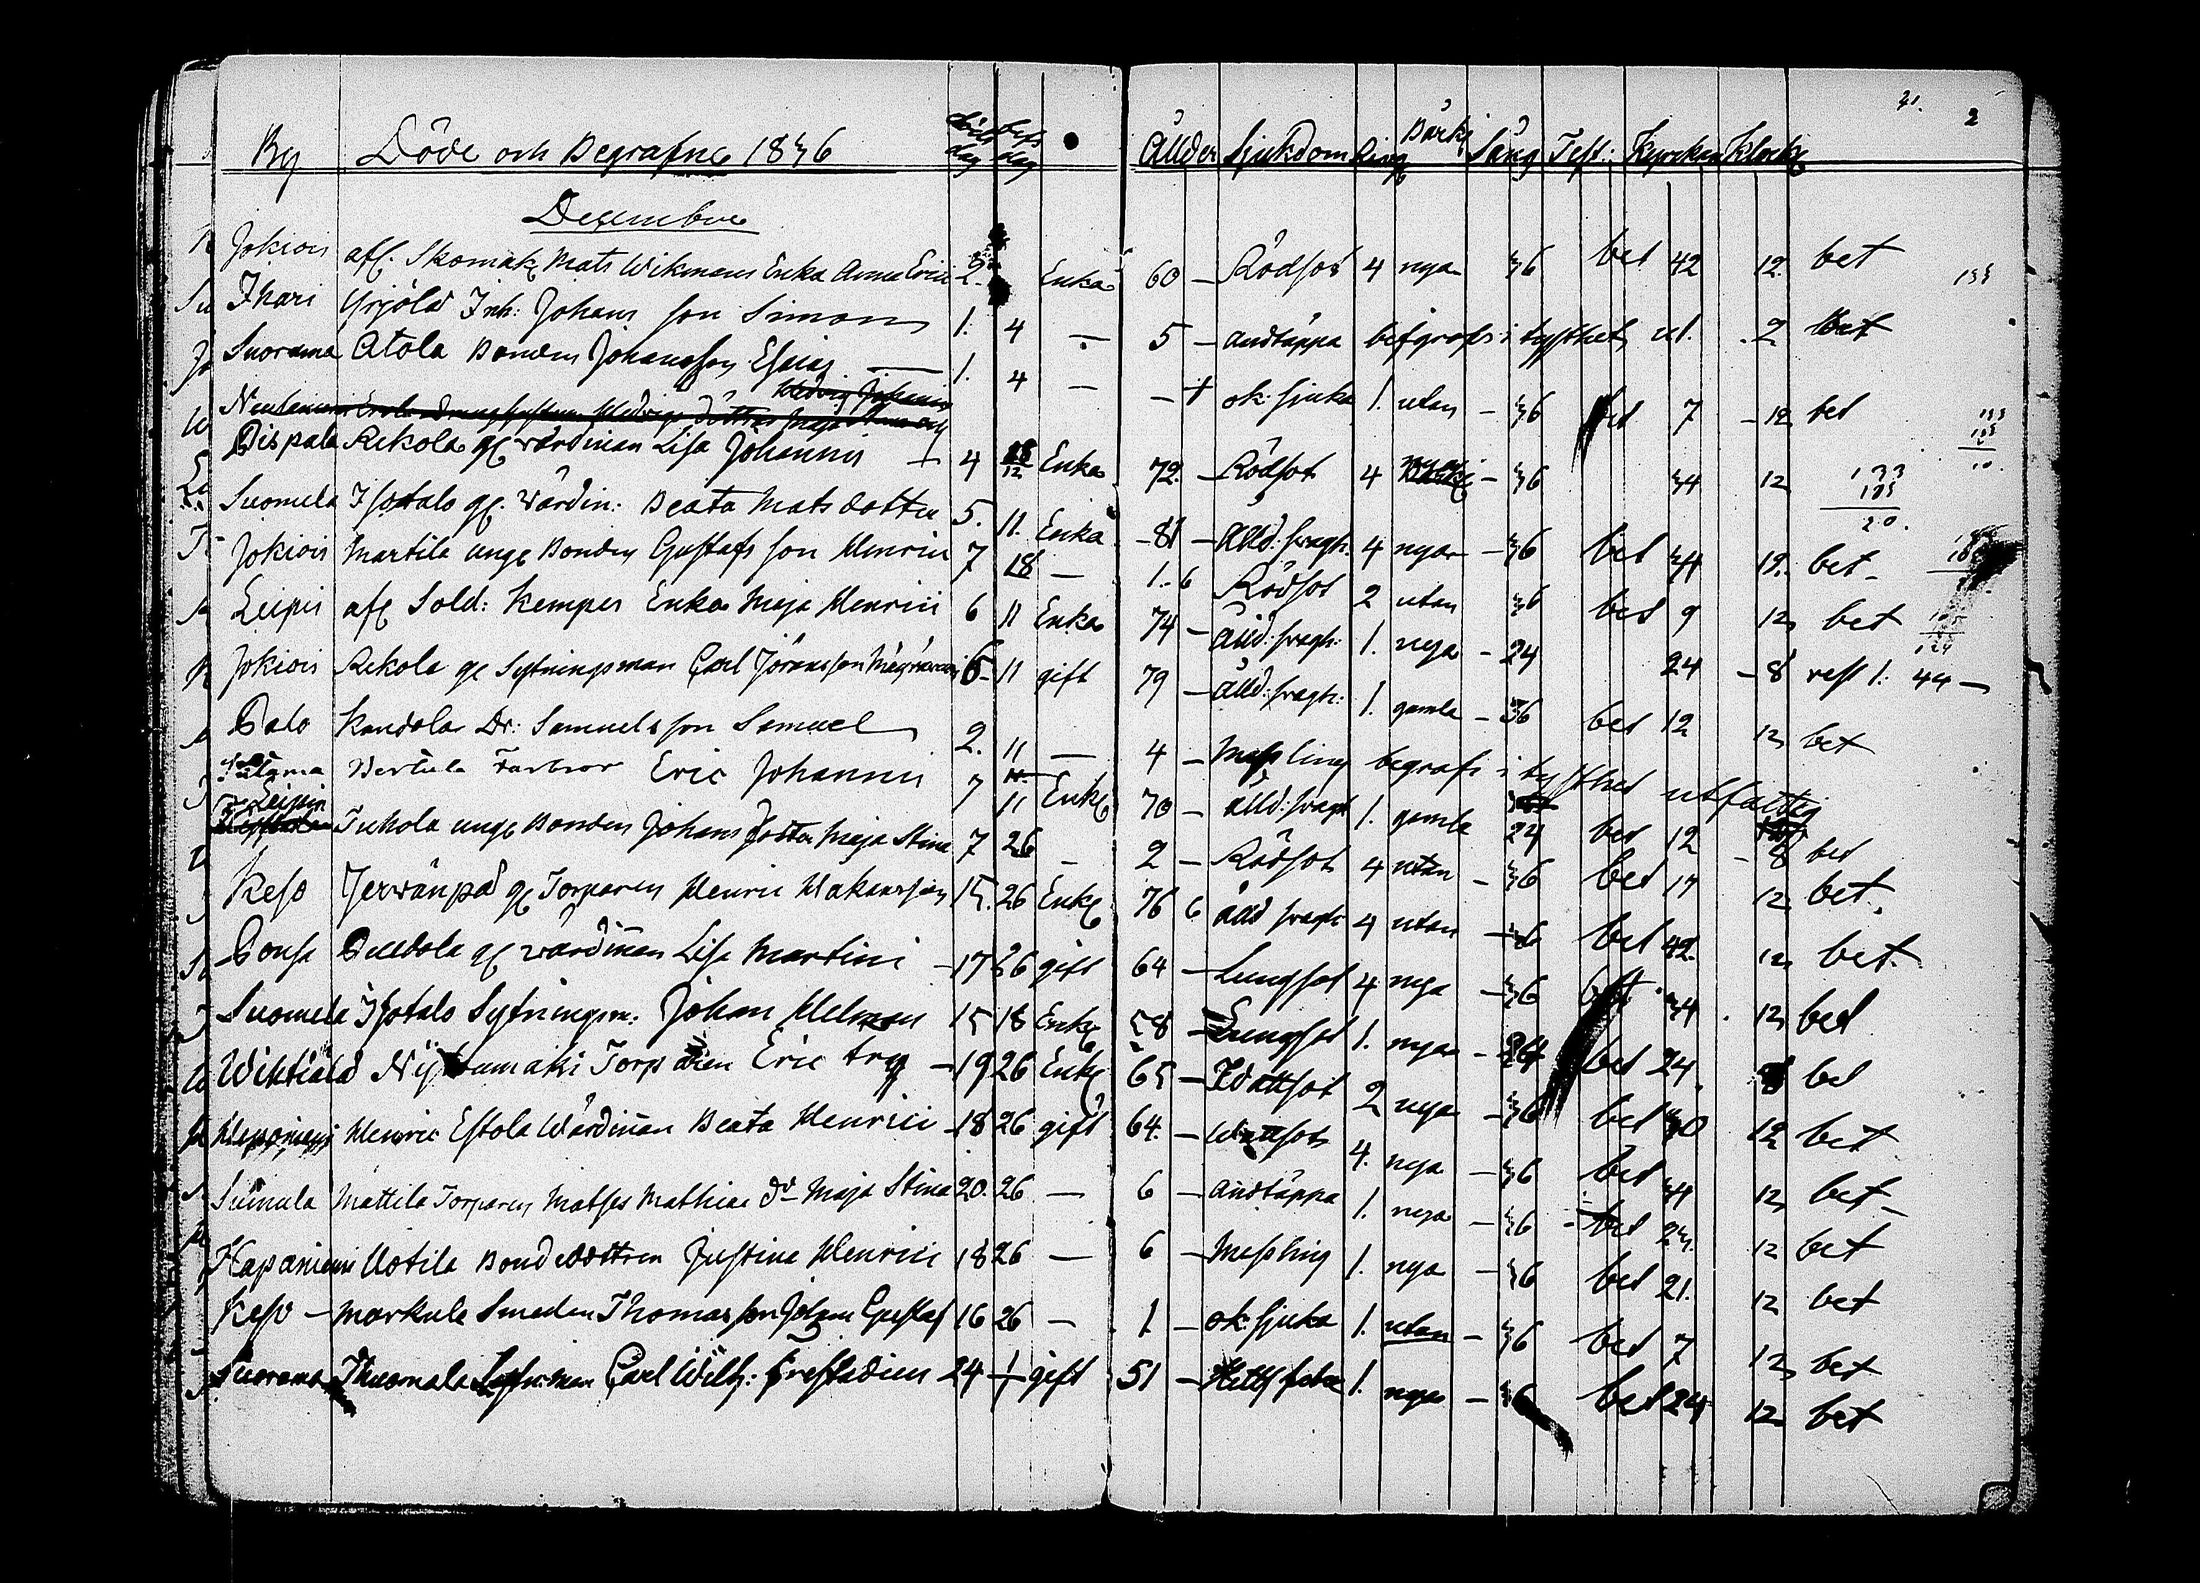 31. 2
By Döde och Begrafne 1836 död dag begr dag Ålder Sjukdom Ring Bårkl Sång Test: Kyrckan Klock
December
Jokiois afl. Skomak Mats Wikmans Enka Anna Eric 2. Enka 60 — Rödsot 4 nya 36 bet 42 12 bet
Ihari Yrjölä Inh: Johans son Simon 1. 4 — 5 — andtäppa begrafs i tysthet 2 bet
Suorama Atola Bonden Johansson Esaias — 1. 4 — ok: sjuka 1. utan — 36 bet 7 — 12 bet
Pispala Rekola gl wärdinnan Lisa Johannis 4 Enka 72 — Rödsot 4 — 36 34 12
Suomela Isotalo gl. Wärdin: Beata Matsdotter 5. 11. Enka — 81 — ålld: swagh: 4 nya — 36 bet 34 12. bet
Jokiois Martila unge Bonden Gustafs son Henric 7 18 — 1. 6 Rödsot 2 utan 36 bet 9 12 bet
Leipis afl Sold: Kempes Enka Maja Henrici 6 11 Enka 74 — ålld: swagh: 1. nya — 24 24 — 8 rest 1: 44 —
Jokiois Rekola gl Sytningsman Carl Jöransson 6 11 gift 79 — ålld: swagh: 1. gamla — 36 bet 12 12 bet
Palo Kandola Dr: Samuelsson Samuel 2. 11 — 4 — Messling begrafs i tysthet utfattig
Bertula Farbror Eric Johannis 7 11 Enkl 70 — ålld: swagh 1. gamla 24 bet 12 — 8 bet
Leipis Tukola unge Bonden Johans dotter Maja Stina 7 26 — 2 — Rödsot 4 utan — 36 bet 17 12 bet.
Keso Jerwänpää gl Torparen Henric Håkansson 15. 26 Enkl 76 6 ålld swagh 4 utan — 36 bet 42. 12 bet.
Ponsa Puldola gl wärdinnan Lisa Martini — 17 26 gift 64 — Lungsot 4 nya — 36 34. 12 bet
Suomela Isotalo Sytningsm: Johan Helman 15 18 Enkl 58 — Lungsot 1. nya — 24 bet 24. 8 bet
Torparen Eric — 19 26 Enkl 65 — 2 nya — 36 bet 30 12 bet
Henric Estola Wärdinnan Beata Henrici — 18 26 gift 64. — Wattsot 4. nya — 36 bet 34 12 bet
Suinula Mattila Torparen Matses Mathias dr Maja Stina 20. 26 — 6 — andtäppa 1. nya — 36 — bet 24. 12 bet
Haapaniemi Uotila Bondedottren Justina Henrici 18 26 — 6 — Messling 1. nya — 36 bet 21. 12 bet
Keso — Markula Smeden Thomas son Johan Gustaf 16 26 — 1 — ok: sjuka 1. utan — 36 bet 7 12 bet
Suorama Thuomala Carl Wilh: 24 gift 51 — 1. nya — 36 bet 24 12 bet